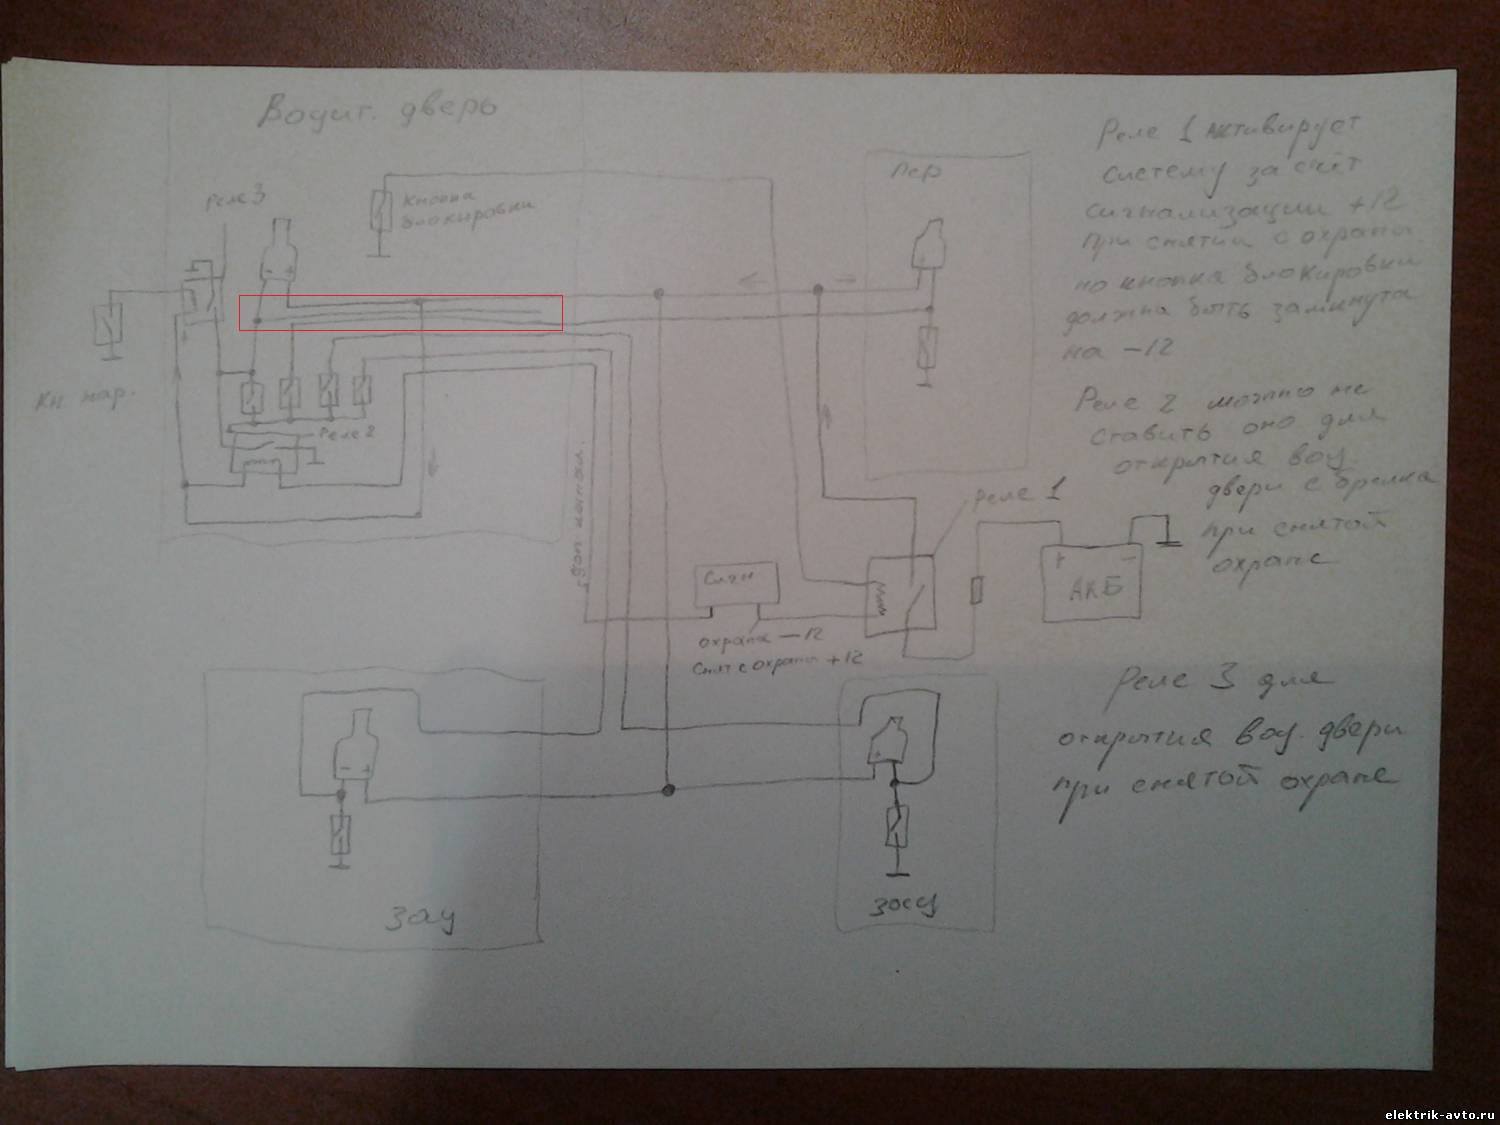 Водит. дверь
Реле 3
Кнопка
блокировки
Пер
Кн нар.
Реле 2
доп канал.
Реле 1
Сигн
охрана -12
Снят с охраны +12
+ -
АКБ
Зау
Реле 1 активирует
систему за счёт
сигнализации +12
при снятии с охраны
но кнопка блокировки
должна быть замкнута
на -12
Реле 2 можно не
ставить оно для
открытия вод.
двери с брелка
при снятой
охране
Реле 3 для
открытия вод. двери
при снятой охране
elektrik-avto.ru